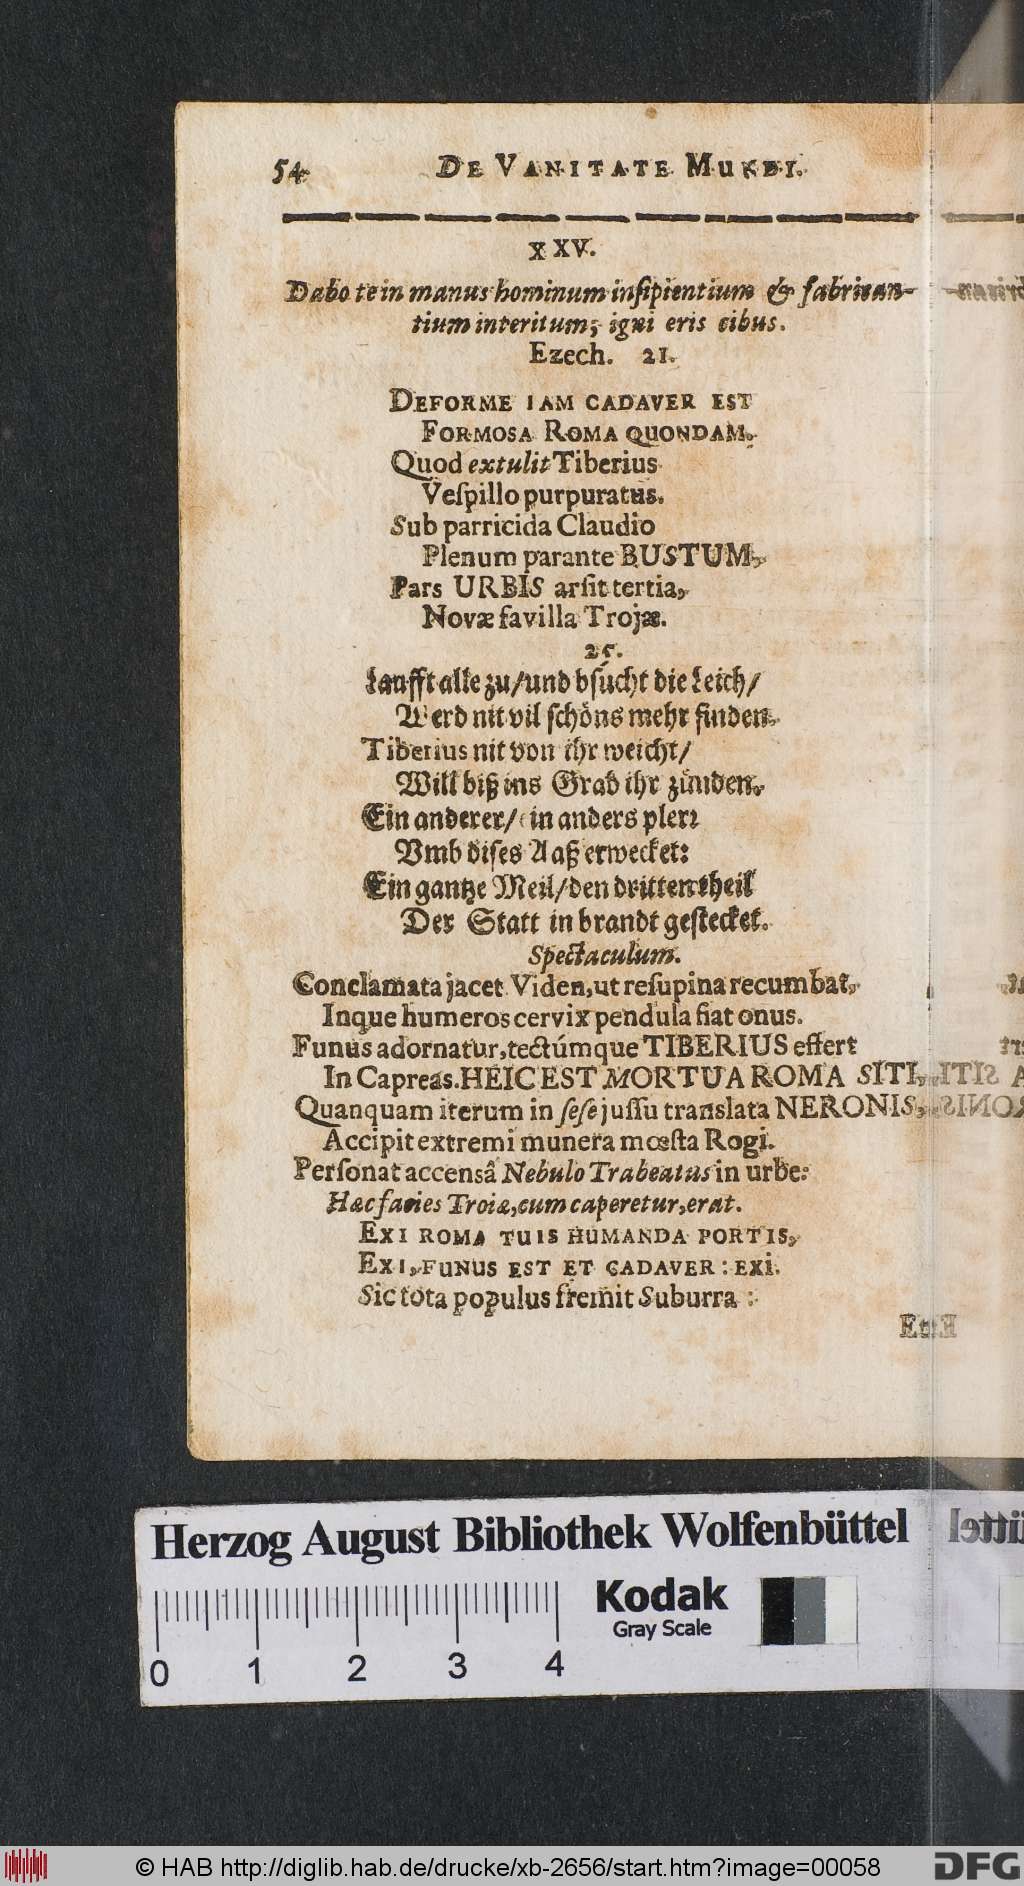 54 DE VANITATE MUNDI.
XXV.
Dabo te in manus hominum insipientium & fabrican-
tium interitum; igni eris cibus.
Ezech. 21.
DEFORME IAM CADAVER EST
FORMOSA ROMA QUONDAM,
Quod extulit Tiberius
Veſpillo purpuratus.
Sub parricida Claudio
Plenum parante BUSTUM,
Pars URBIS arſit tertia,
Novæ favilla Trojæ.
25.
Laufft alle zu/und bſücht die Leich/
Werd nit vil ſchöns mehr finden.
Tiberius nit von ihr weicht/
Will biß ins Grab ihr zünden.
Ein anderer/ ein anders
Vmb diſes Aaß erwecket:
Ein gantze Meil/den dritten theil
Der Statt in brandt geſtecket.
Spectaculum.
Conclamata jacet. Viden, ut reſupina recumbat,
Inque humeros cervix pendula fiat onus.
Funus adornatur, tectúmque TIBERIUS effert
In Capreas. HEIC EST MORTUA ROMA SITI,
Quanquam iterum in ſeſe juſſu translata NERONIS,
Accipit extremi munera mœſta Rogi.
Perſonat accensâ Nebulo Trabeatus in urbe:
Hæc facies Troiæ, cum caperetur, erat.
EXI ROMA TUIS HUMANDA PORTIS,
EXI, FUNUS EST ET CADAVER: EXI.
Sic tota populus fremit Suburra:
Herzog August Bibliothek Wolfenbüttel
Kodak
Gray Scale
0 1 2 3 4
© HAB http://diglib.hab.de/drucke/xb-2656/start.htm?image=00058
DFG